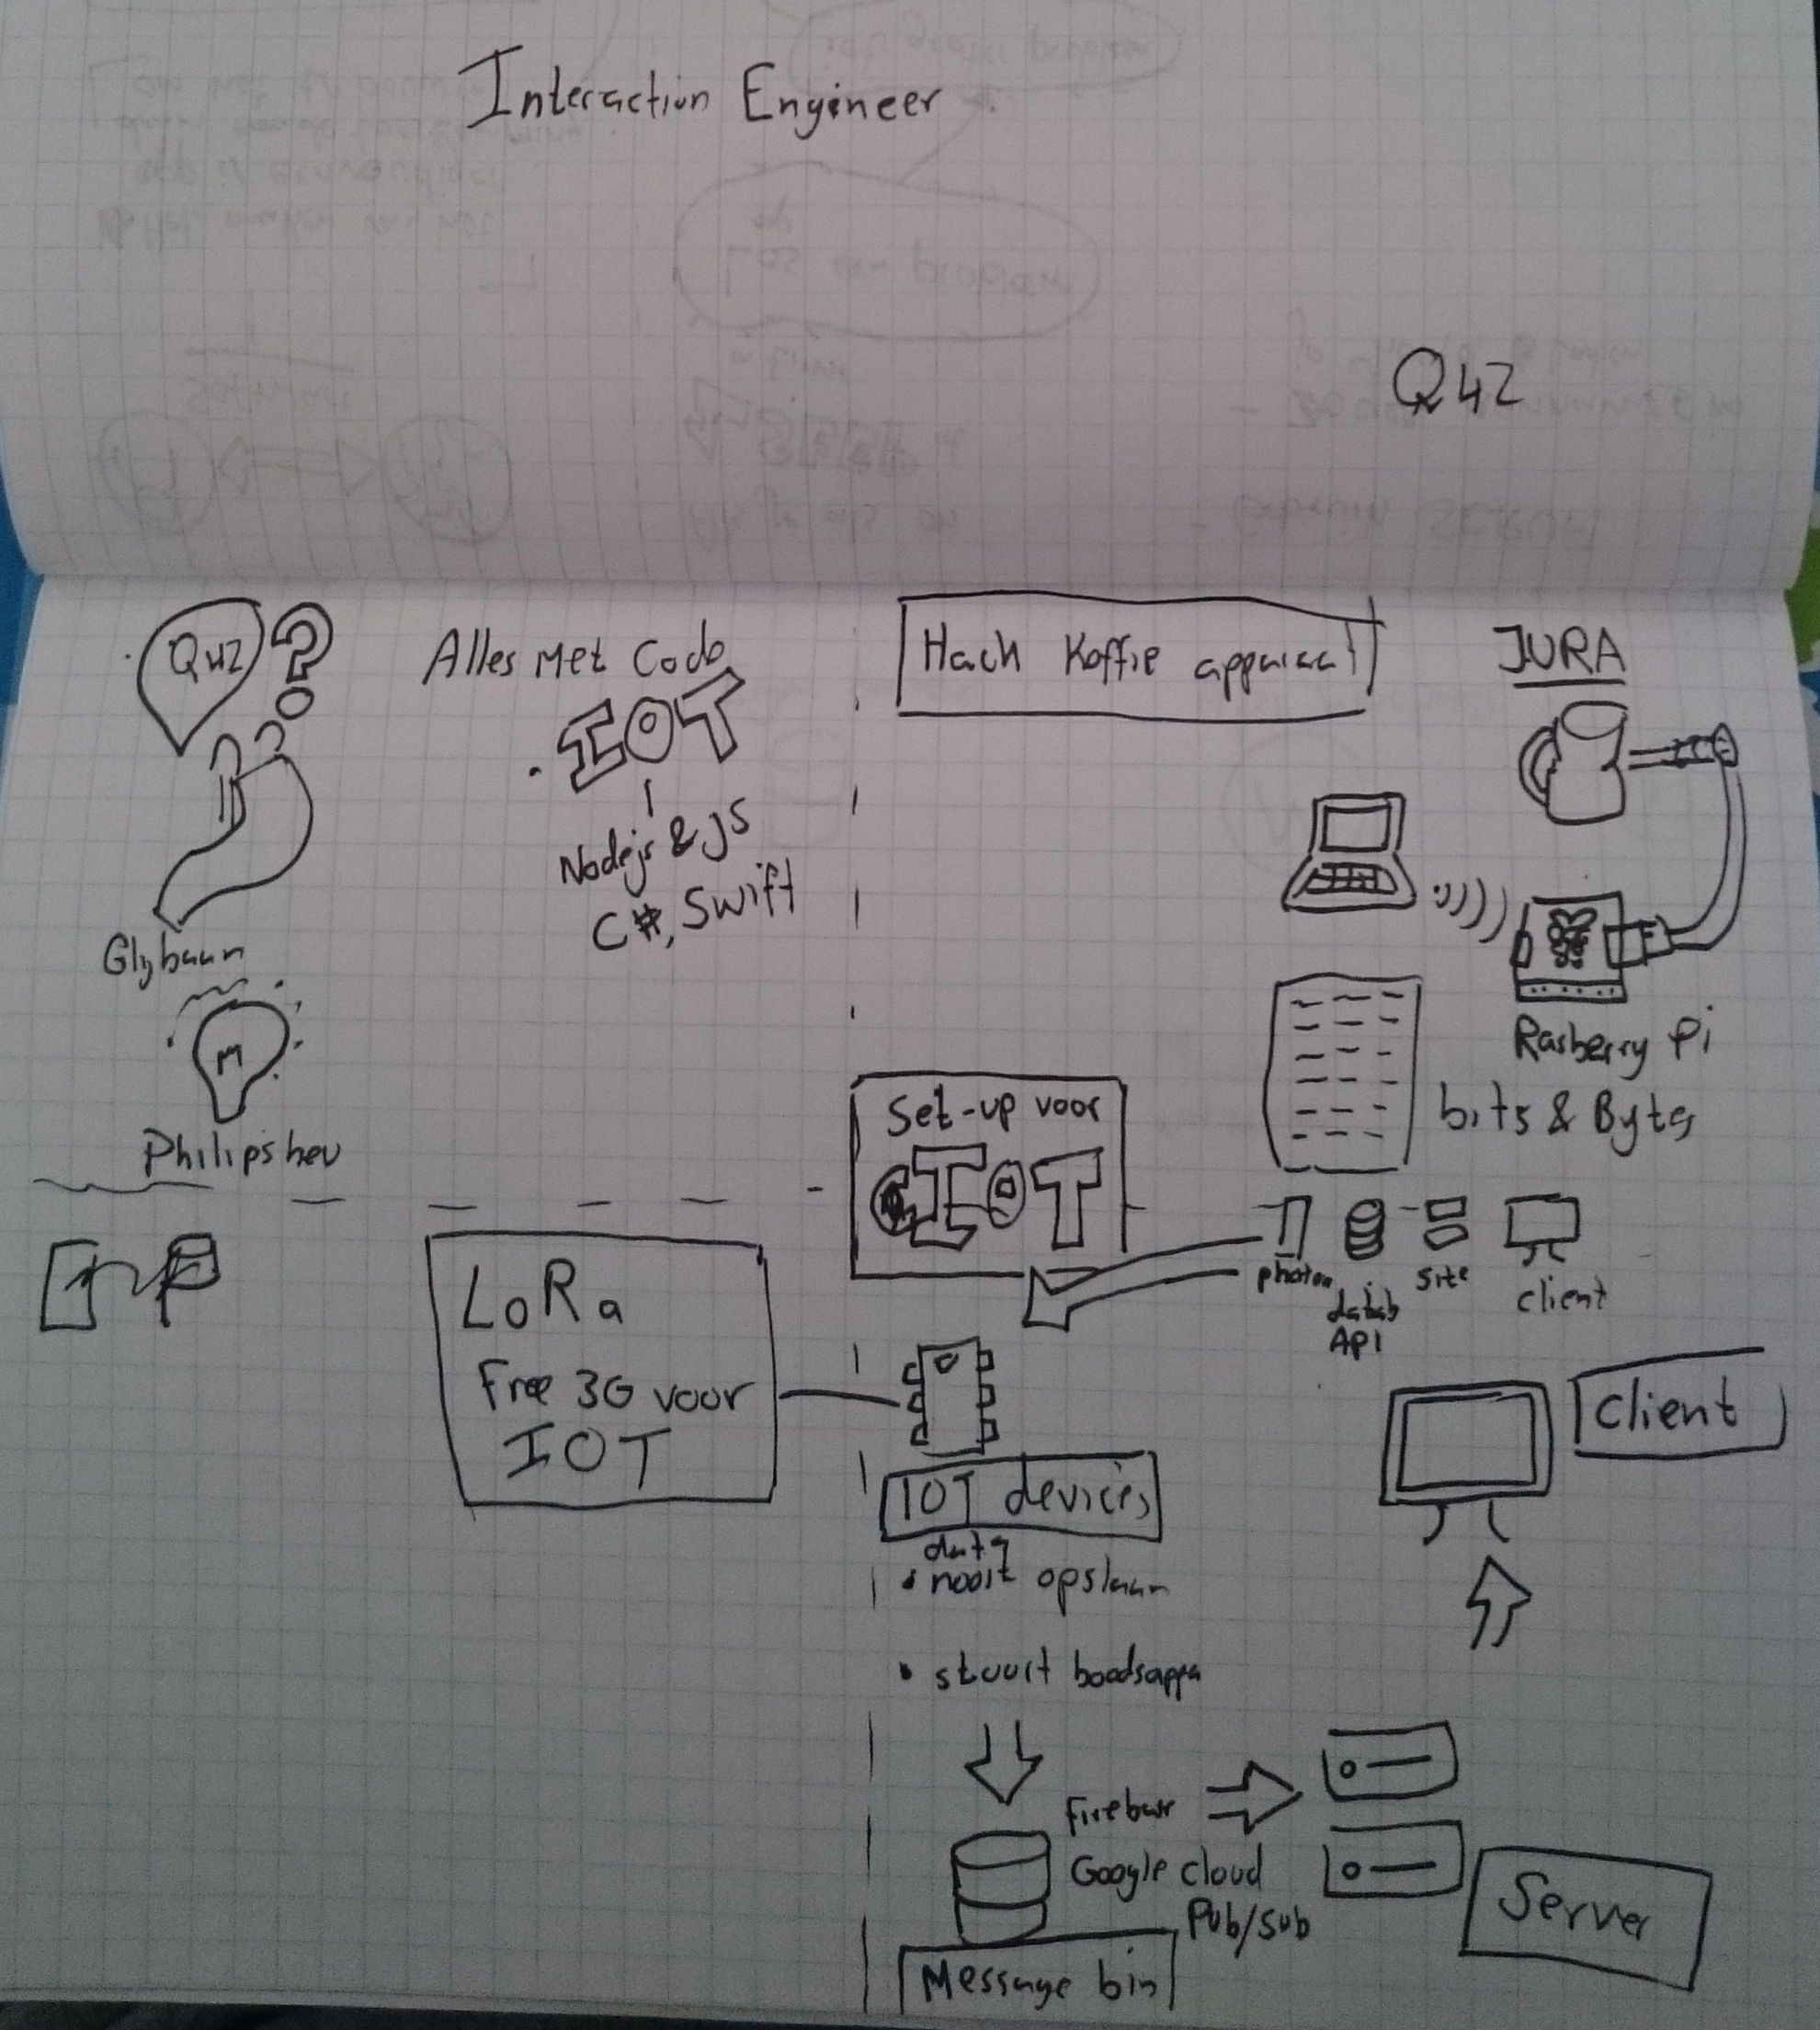 Interaction Engineer
Q42
Q42
?
Glybaan
M
Philips heu
Alles Met Code
IOT
Nodejs & JS
C#, Swift
Hack Koffie apparaat
JURA
Rasberry Pi
bits & Bytes
Set-up voor
IOT
photon
datab
API
site
client
LoRa
Free 3G voor
IOT
IOT devices
data
• nooit opslaan
• stuurt boodsappen
Firebase
Google cloud
Pub/Sub
Message bin
Server
Client